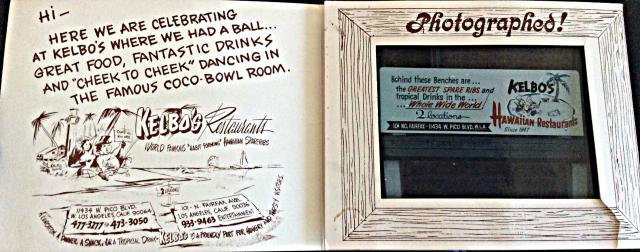 Hi-
HERE WE ARE CELEBRATING
AT KELBO'S WHERE WE HAD A BALL...
GREAT FOOD, FANTASTIC DRINKS
AND "CHEEK TO CHEEK" DANCING IN
THE FAMOUS COCO-BOWL ROOM.
KELBO'S Restaurants
WORLD FAMOUS "HABIT FORMING" HAWAIIAN SPARERIBS
2 locations
11434 W. PICO BLVD.
W. LOS ANGELES, CALIF. 90064
477-3277 473-3050
101 - N. FAIRFAX AVE.
LOS ANGELES, CALIF. 90036
933-9463 ENTERTAINMENT
DINNER, A SNACK, OR A TROPICAL DRINK KELBO'S IS A FRIENDLY PORT FOR HUNGRY
Photographed!
Behind these Benches are...
the GREATEST SPARE RIBS and
tropical Drinks in the ...
... Whole Wide World!
2 locations
101 NO. FAIRFAX - 11434 W. PICO BLVD. W.L.A.
KELBO'S
HAWAIIAN Restaurants
Since 1947